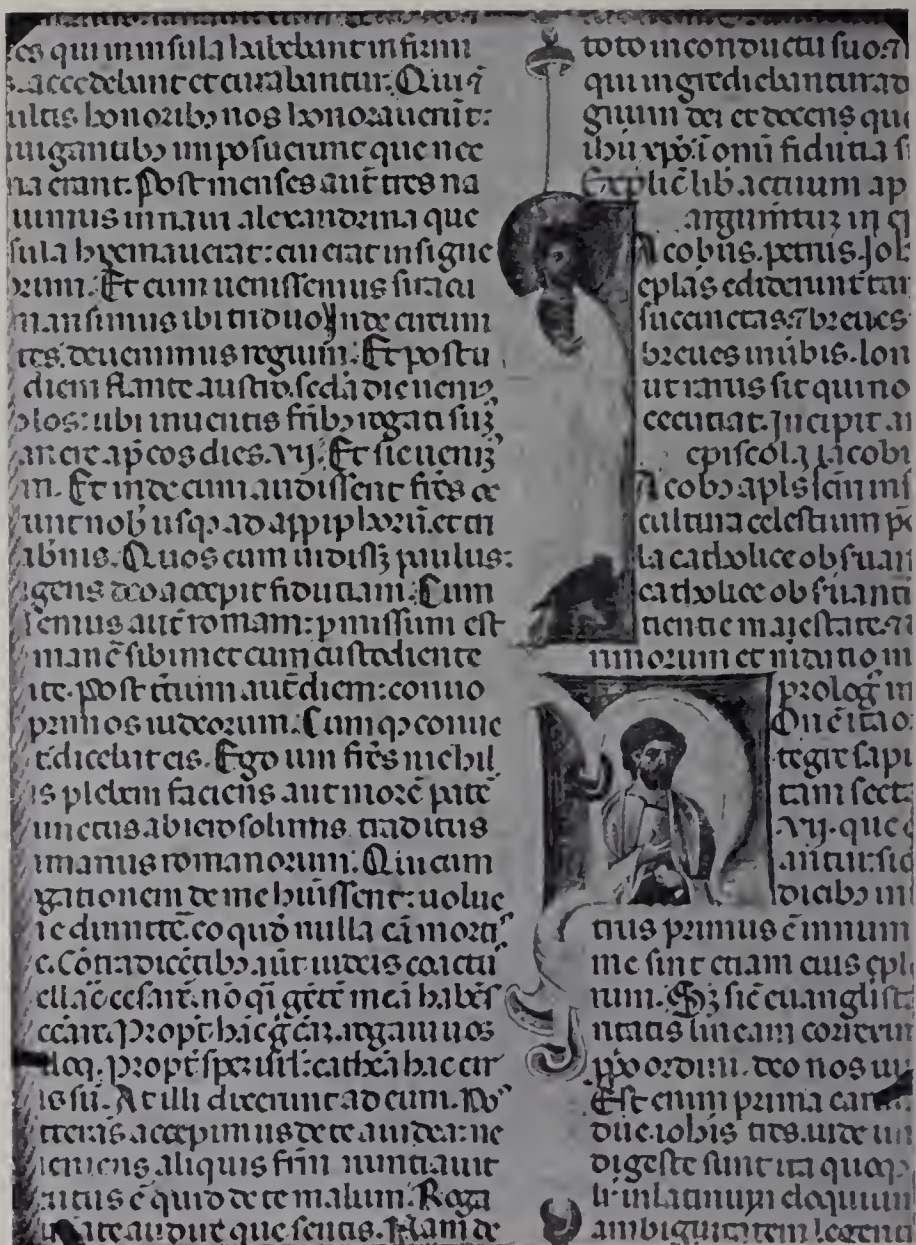 es qui in insula habebant infirmi
accedebant et curabantur. Qui ⁊
ultis honoribꝫ nos honorauerūt:
uigantibꝫ imposuerunt que nec
ria erant. Post menses aut̄ tres na
uimus in naui alexandrina que
sula hyemauerat: cui erat insigne
orum. Et cum uenissemus siracu
mansimus ibi triduo Inde circum
tes. deuenimus regium. Et post u
diem flante austro. scd̄a die uenimꝰ
olos: ubi inuentis fr̄ibꝫ rogati sumꝰ
anere ap̄ eos dies. vij. Et sic uenimꝰ
m. Et inde cum audissent fr̄es oc
unt nob̄ usqꝫ ad appiphorū. et tri
abnis. Quos cum uidissꝫ paulus:
gens deo accepit fiduciam. Cum
semus aut̄ romam: pmissum est
manē sibimet cum custodiente
ite. Post t̄cium aut̄ diem: conuo
primos iudeorum. Cumqꝫ conue
t. dicebat eis. Ego uiri fr̄es nichil
is plebem faciens aut morē pat̄e
uinctus ab ierosolimis traditus
manus romanorum. Qui cum
gationem de me h̄uissent: uolue
ie dimitt̄e. eo quod nulla cā morti
e. Cōtradicētibꝫ aut̄ iudeis coactꝰ
ellare cesarē. nō q̄i gētē meā habēs
ccūare. Propt̄ hāc g̃ cāꝫ. rogaui uos
loq. Propt̄ speꝫ isrl̄: cathena hac cir
is sū. At illi dixerunt ad eum. No
tteras accepimus de te a iudea: ne
ueniens aliquis fr̄m nuntiauit
cutus ē quid de te malum. Roga
ate audire que sentis. Nam de
toto in conductu suo. ⁊
qui ingrediebantur ad
gnum dei et docens que
ih̄u xp̄o. ī omī fidutia s
Explic̄ lib. actuum ap
argum̄tuꝫ in ep
Jacobus. petrus. Joh
ep̄las ediderunt tam
succinctas. ⁊ breues
breues in ūbis. lon
ut rarus sit qui no
cecutiat. Incipit ar
epistola iacobi
Jacobꝰ ap̄ls sc̄m in s
cultura celestium p̄
la catholice obs̄uan
catholice obs̄uanti
tientie maiestate. ⁊
minorum et m̄ditio m
prolog̃ in
On ē ita o
tegre sapi
tam sect
.vij. que
antur. sic
dicibꝫ in
trus primus ē in num
me sint etiam eius ep̄l
rum. Sꝫ sic̄ euanglist
ritatis lineam correxim
pp̃o ordini. deo nos iuu
Est enim prima earum
due. iohis tres. iude un
digeste sunt ita quoqꝫ
li in latinum eloquium
ambiguitatem legenti